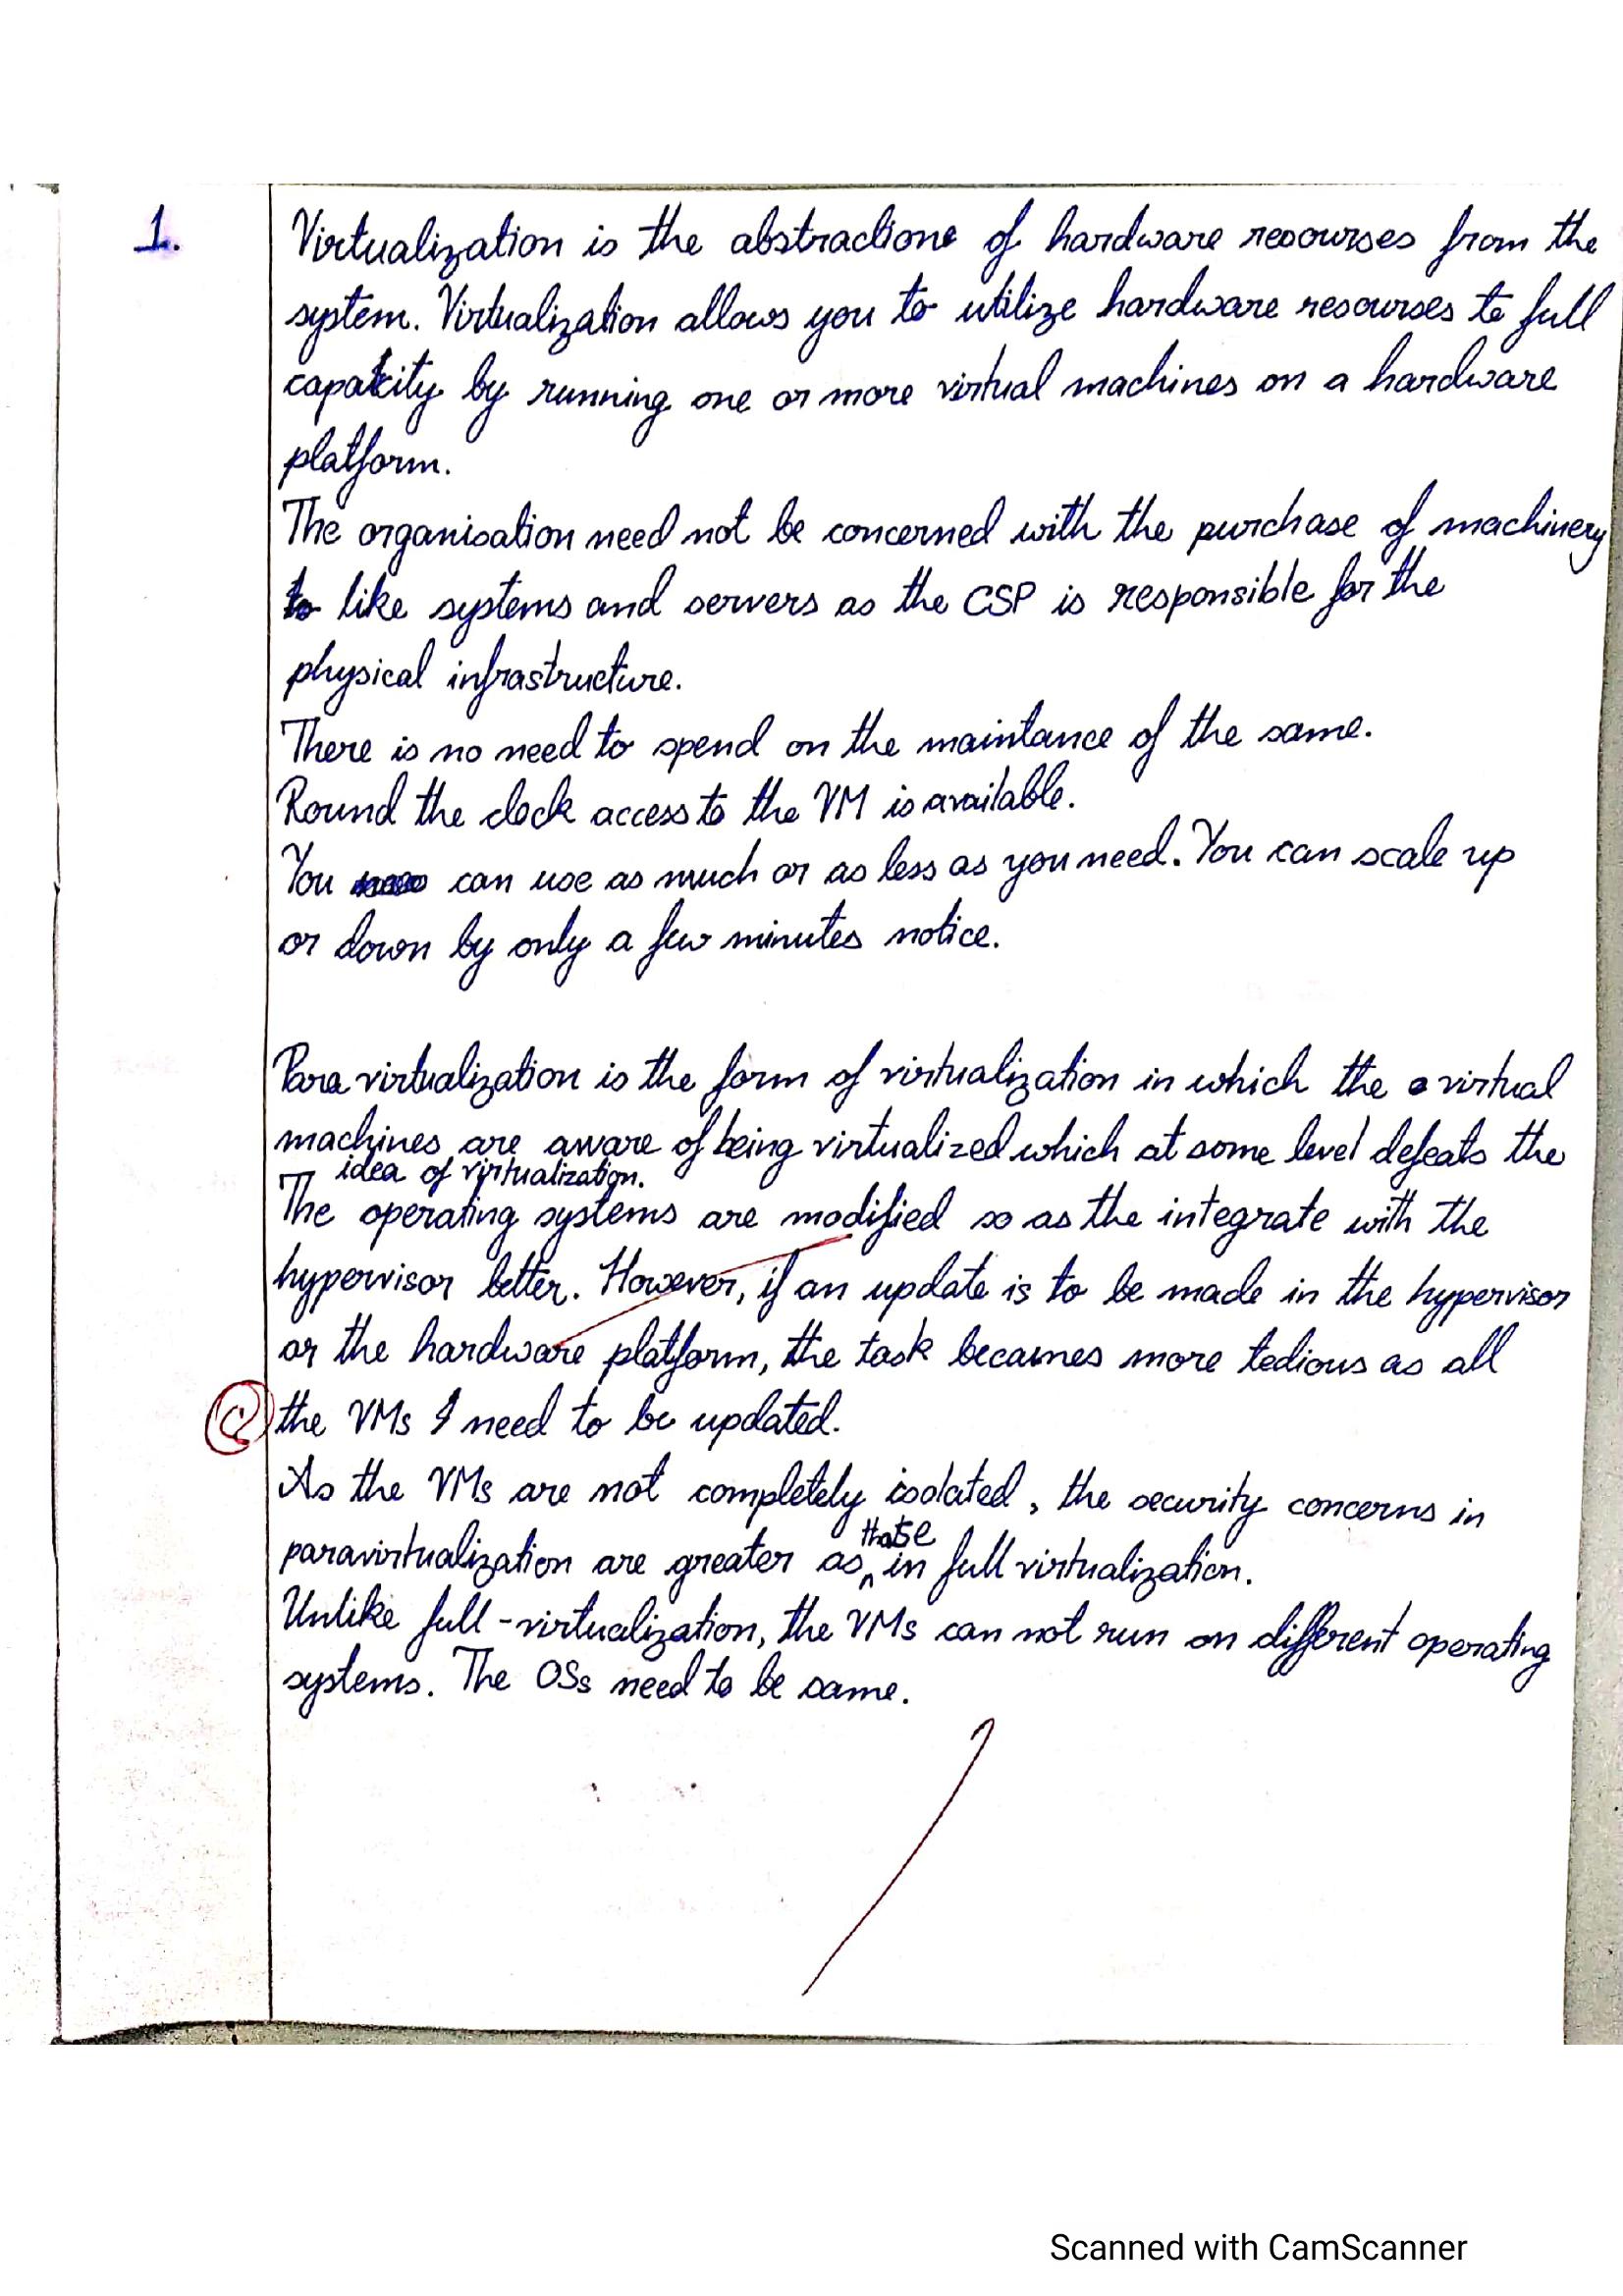 1.
Virtualization is the abstractione of hardware resourses from the
system. Virtualization allows you to utilize hardware resourses to full
capakity by running one or more virtual machines on a hardware
platform.
The organisation need not be concerned with the purchase of machinery
to like systems and servers as the CSP is responsible for the
physical infrastructure.
There is no need to spend on the maintance of the same.
Round the clock access to the VM is available.
You can use as much or as less as you need. You can scale up
or down by only a few minutes notice.
Para virtualization is the form of virtualization in which the virtual
machines are aware of being virtualized which at some level defeats the
idea of virtualization.
The operating systems are modified so as the integrate with the
hypervisor better. However, if an update is to be made in the hypervisor
or the hardware platform, the task becomes more tedious as all
the VMs need to be updated.
As the VMs are not completely isolated, the security concerns in
paravirtualization are greater as those in full virtualization.
Unlike full-virtualization, the VMs can not run on different operating
systems. The OSs need to be same.
Scanned with CamScanner